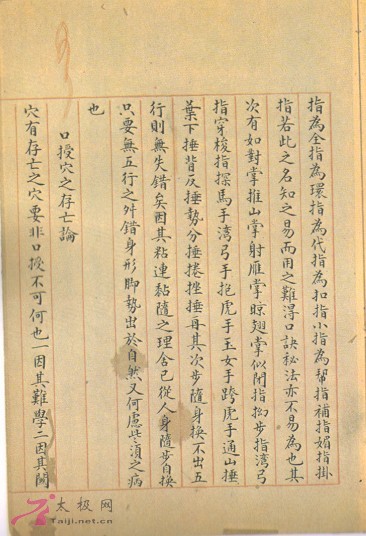 指為全指為環指為代指為扣指小指為幫指補指媚指掛
指若此之名知之易而用之難得口訣秘法亦不易為也其
次有如對掌推山掌射雁掌晾翅掌似閉指拗步指灣弓
指穿梭指探馬手灣弓手抱虎手玉女手跨虎手通山捶
葉下捶背反捶勢分捶捲挫捶再其次步隨身換不出五
行則無失錯矣因其粘連黏隨之理舍己從人身隨步自換
只要無五行之舛錯身形脚勢出於自然又何慮些須之病
也
口授穴之存亡論
穴有存亡之穴要非口授不可何也一因其難學二因其關
太极网
Taiji.net.cn